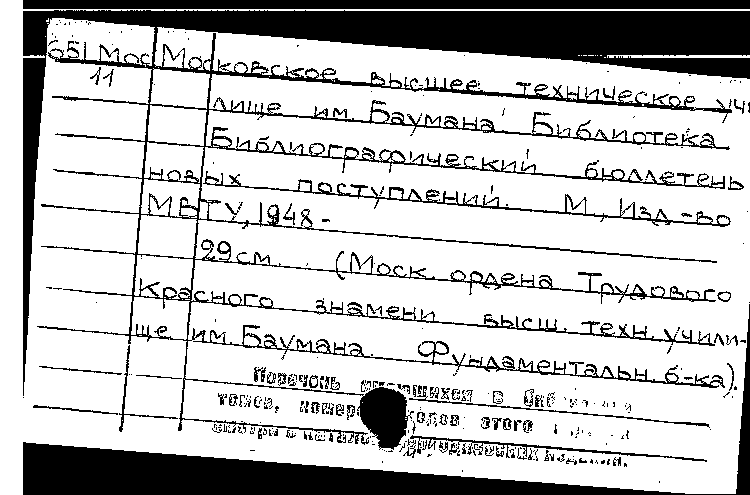 651 Мос Московское высшее техническое учи-
11 лище им. Баумана. Библиотека
Библиографический бюллетень
новых поступлений. М., Изд-во
МВТУ, 1948-
29см. (Моск. ордена Трудового
Красного знамени высш. техн. учили-
ще им. Баумана. Фундаментальн. б-ка).
Перечень имеющихся в
томов, этого
смотри в периодических изданий.